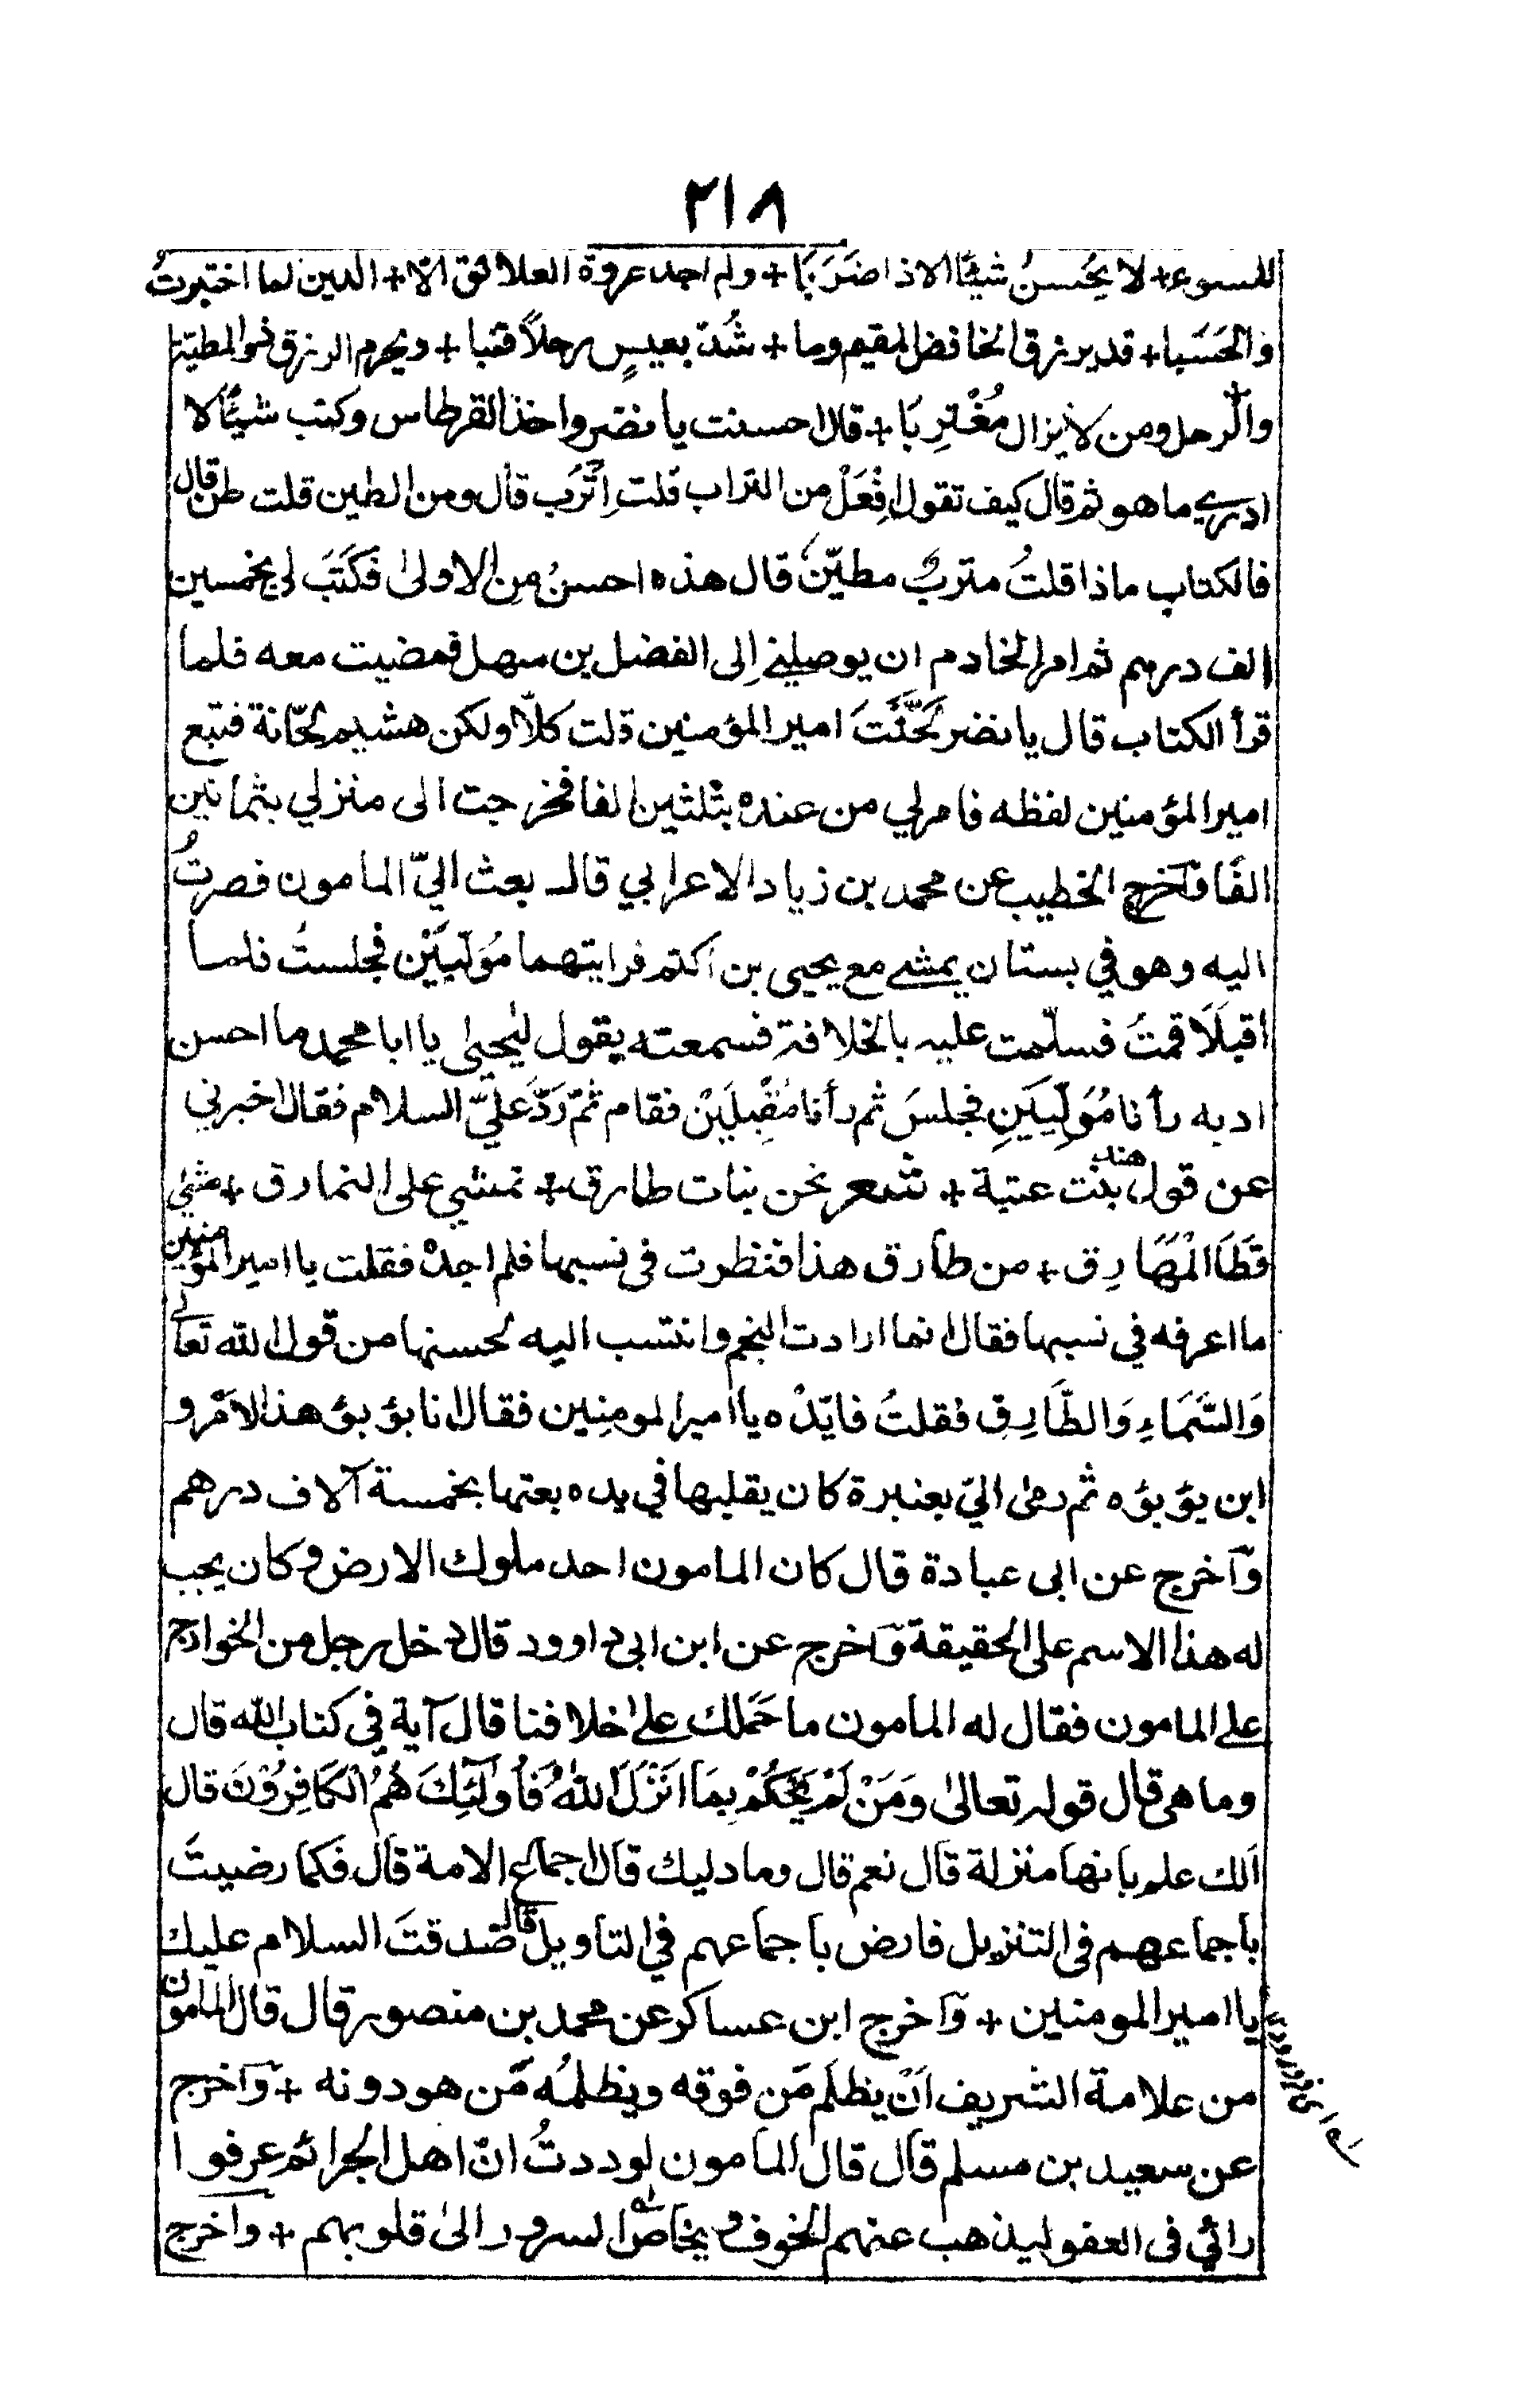 ٢١٨
للسوء + لا يُحسنُ شيئًا الا اذا ضَرَبَا + ولم اجد عروة العلائق الّا + الدين لما اختبرتُ
والحَسَبا + قد يرزق الخافض المقيم وما + شُدّ بعيسٍ رحلاً قتبا + ويحرم الرزق ذو المطيّة
والرّحل ومن لا يزال مُغْتَرِبَا + قال احسنت يا نضر واخذ القرطاس وكتب شيئًا لا
ادري ما هو ثم قال كيف تقول اِفْعَلْ من التراب قلت اِتْرَب قال ومن الطين قلت طن قال
فالكتاب ماذا قلتُ متربٌ مطيّن قال هذه احسنُ من الاولىٰ فكَتَبَ لي بخمسين
الف درهم ثم امر الخادم ان يوصلني اِلى الفضل بن سهل فمضيت معه فلما
قرأ الكتاب قال يا نضر لَحَّنْتَ امير المؤمنين قلت كلّا ولكن هشيم لحّانة فتبع
امير المؤمنين لفظه فامر لي من عنده بثلثين الفا فخرجت الى منزلي بثمانين
الفًا وآخرج الخطيب عن محمد بن زياد الاعرابي قال بعث اليّ المامون فصرتُ
اليه وهو في بستان يمشي مع يحيى بن اكثم فرايتهما مُوَلّيَيْن فجلستُ فلما
اقبلَا قمتُ فسلّمت عليه بالخلافة فسمعته يقول ليحيٰى يا ابا محمد ما احسن
ادبه رأنا مُوَلّيَيَنِ فجلسَ ثم رأنا مُقْبِلَيْن فقام ثمّ رَدَّ عليّ السلام فقال اخبرني
عن قول هند بنت عتبة + شعر نحن بنات طارق + نمشي على النمارق + مشي
قَطَا الْمَهَارِق + من طارق هذا فنظرت في نسبها فلم اجدْ فقلت يا امير المؤمنين
ما اعرفه في نسبها فقال انما ارادت النجم وانتسب اليه لحسنها من قول الله تعالى
وَالسَّمَاءِ وَالطَّارِقِ فقلتُ فايّدْه يا امير المومِنِين فقال انا بؤبؤ هذا الاَمْر و
ابن بؤبؤه ثم رمىٰ اليّ بعنبرة كان يقلبها في يده بعتها بخمسة آلاف درهم
وّآخرج عن ابى عبادة قال كان المامون احد ملوك الارض وكان يجب
له هذا الاسم على الحقيقة وآخرج عن ابن ابي داوود قال دخل رجل من الخوارج
على المامون فقال له المامون ما حَمَلك على خلافنا قال آية في كتاب الله قال
وما هى قال قوله تعالىٰ وَمَنْ لَمْ يَحْكُمْ بِمَا اَنْزَلَ اللهُ فَاُولٰئِكَ هُمُ الْكَافِرُوْنَ قال
اَلك علم بانها منزلة قال نعم قال وما دليلك قال اجماع الامة قال فكما رضيتَ
باجماعهم في التنزيل فارض باجماعهم في التاويل قال صدقتَ السلام عليك
يا امير المومنين + وآخرج ابن عساكر عن محمد بن منصور قال قال المامون
من علامة الشريف اَنْ يظلَم مَن فوقه ويظلمُه مَّن هو دونه + وآخرج
عن سعيد بن مسلم قال قال المامون لوددتُ انّ اهل الجرائم عرفوا
رائي في العفو ليذهب عنهم الخوف ويخاص السرور الىٰ قلوبهم + وآخرج